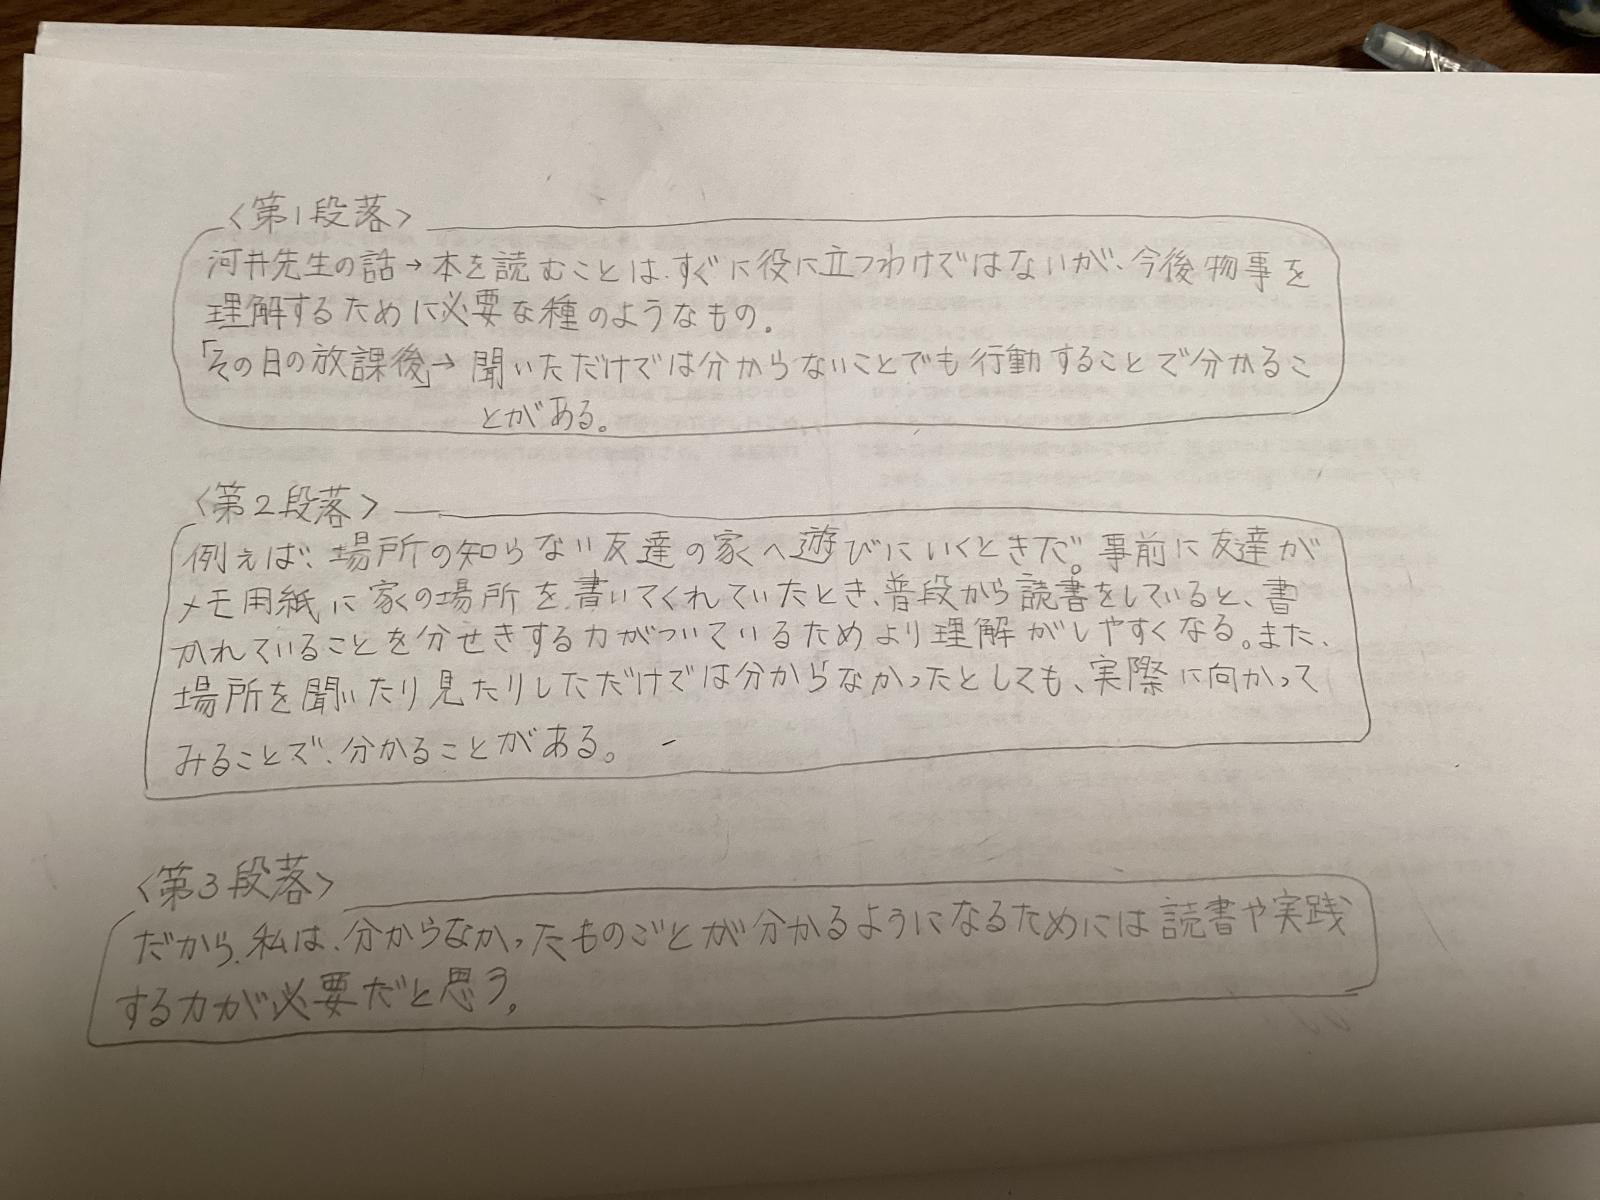 〈第1段落〉
河井先生の話→本を読むことは、すぐに役に立つわけではないが、今後物事を
理解するために必要な種のようなもの。
「その日の放課後」→聞いただけでは分からないことでも行動することで分かるこ
とがある。
〈第2段落〉
例えば、場所の知らない友達の家へ遊びにいくときだ。事前に友達が
メモ用紙に家の場所を書いてくれていたとき、普段から読書をしていると、書
かれていることを分せきする力がついているためより理解がしやすくなる。また、
場所を聞いたり見たりしただけでは分からなかったとしても、実際に向かって
みることで、分かることがある。
〈第3段落〉
だから、私は、分からなかったものごとが分かるようになるためには読書や実践
する力が必要だと思う。